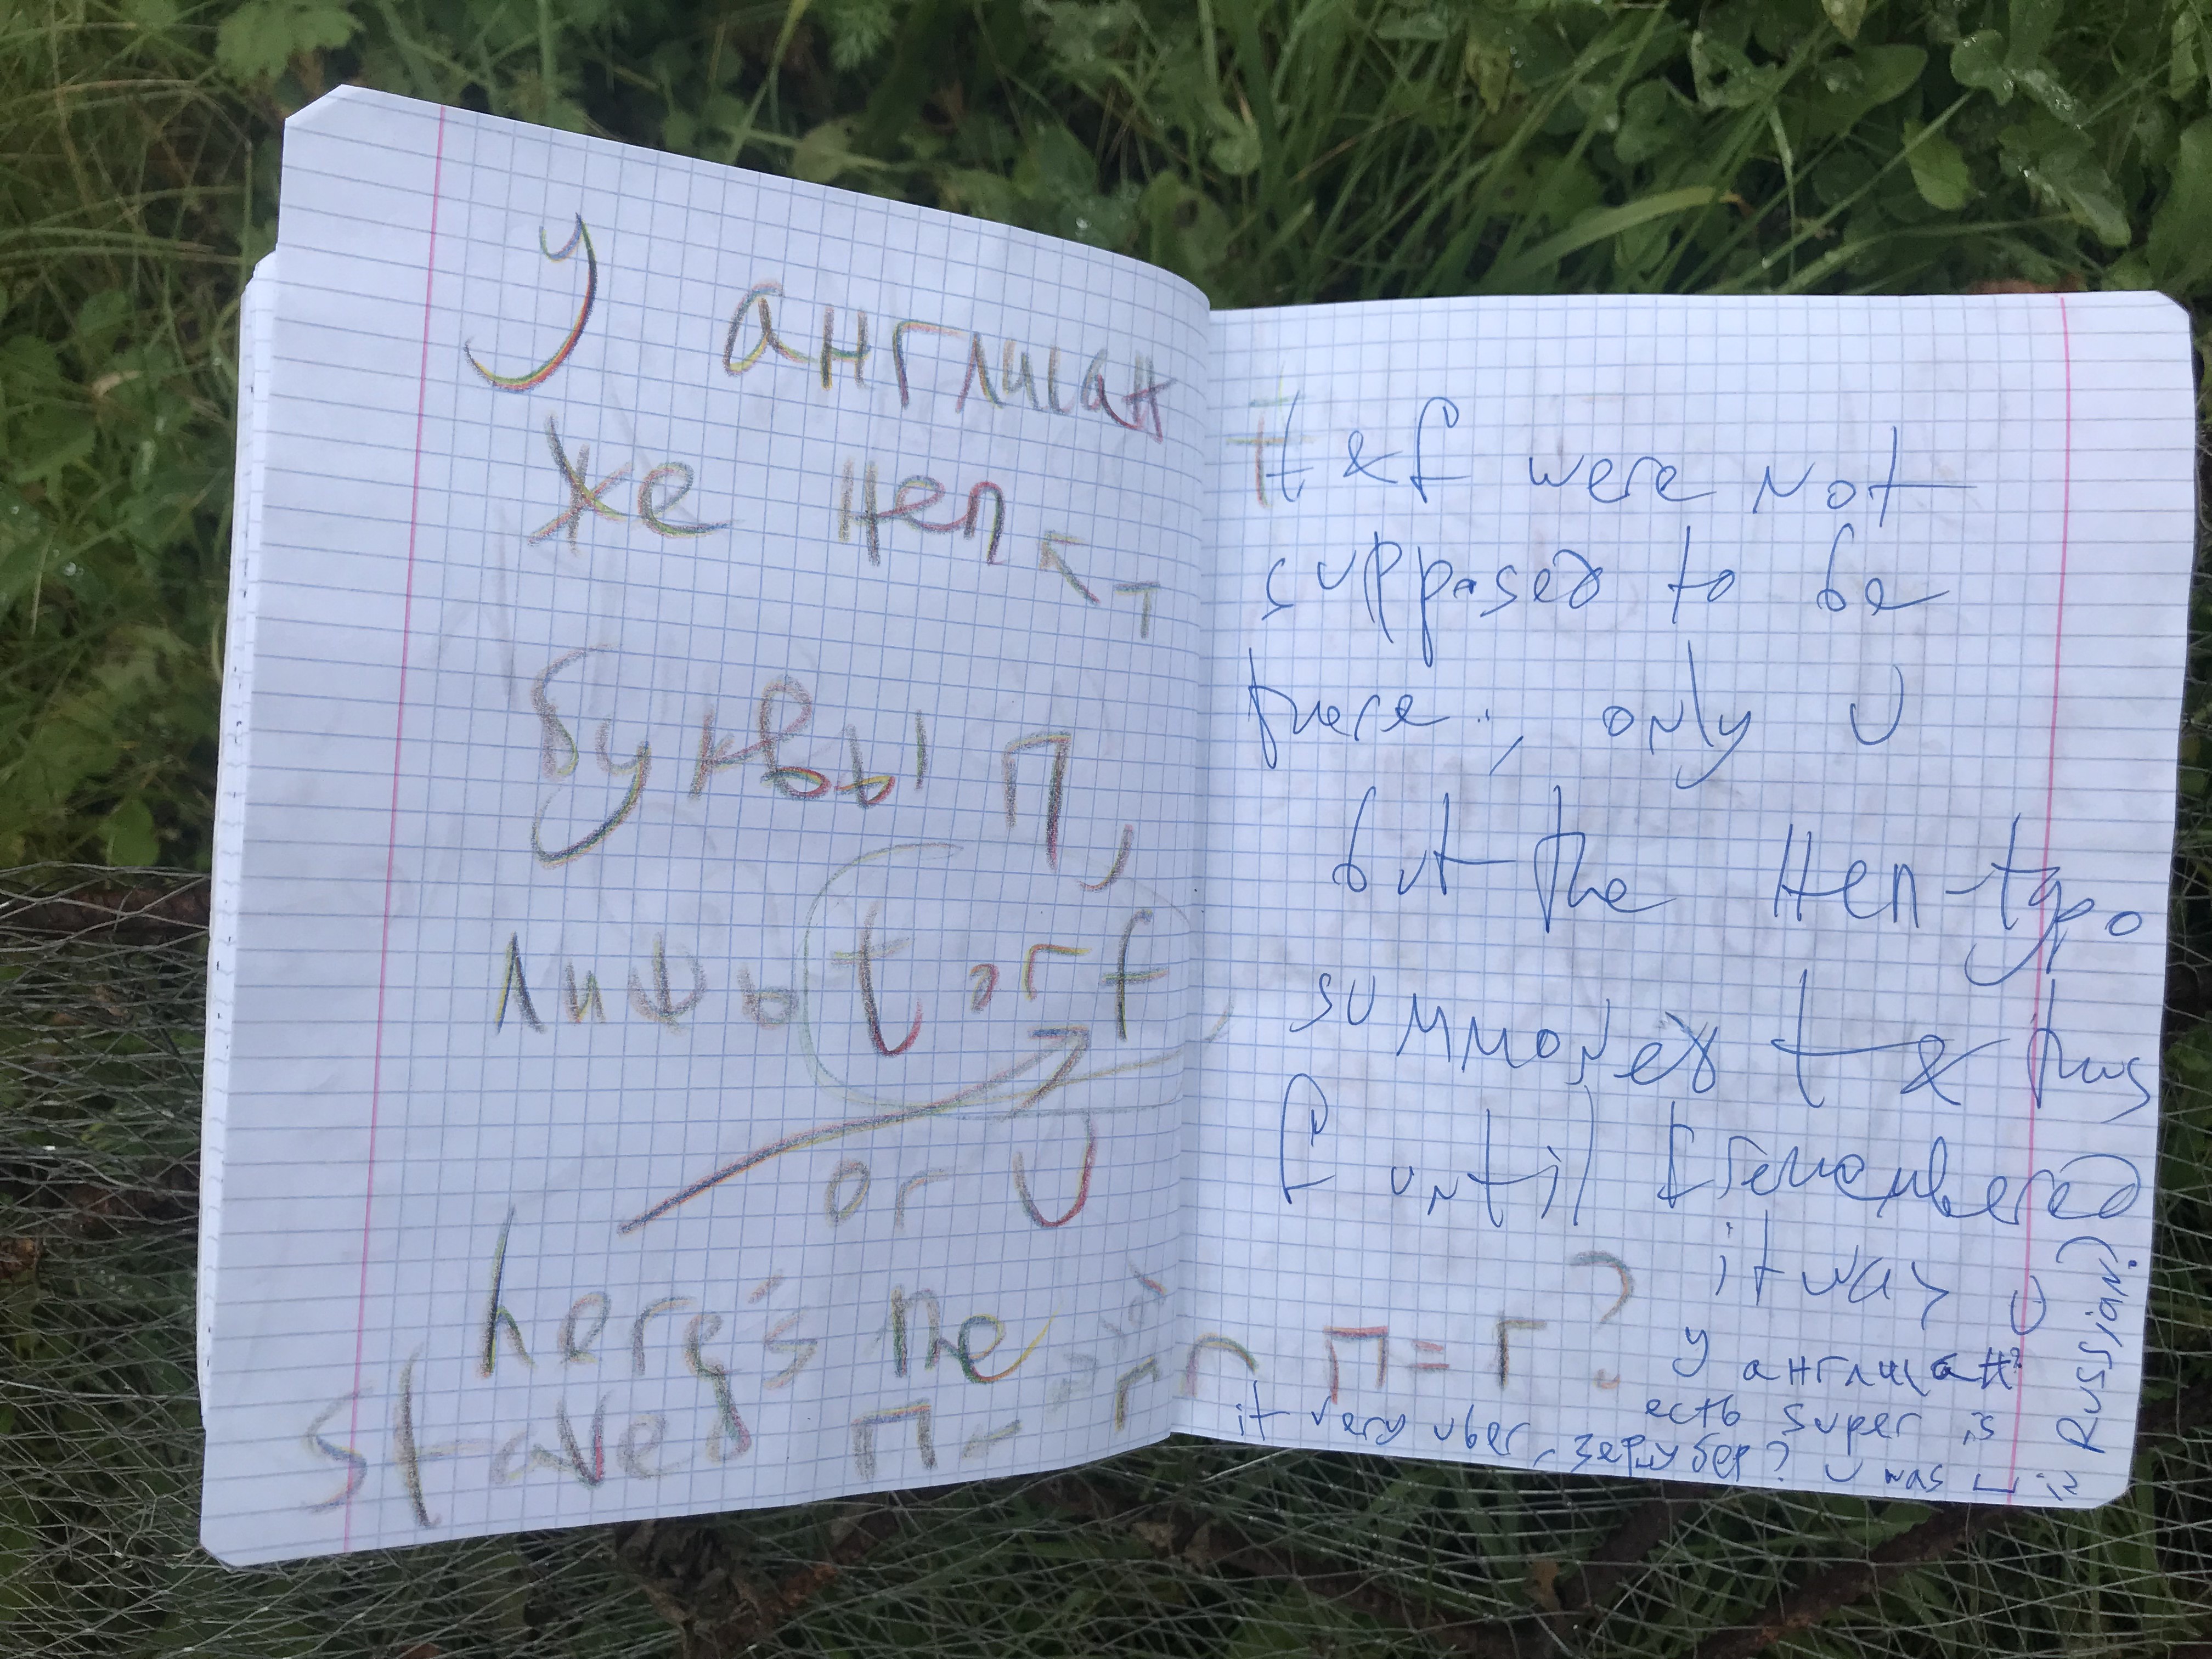 У англичан
же неп ↖ т
буквы П,
лишь t or f
or U
here's the
staved П -
t & f were not
supposed to be
there, only U
but the неп-typo
summoned t & thus
f until I remembered
it was U
П = г ?
У англичан
есть super is
it very uber, зериубер? U was ⊔ in
Russian?